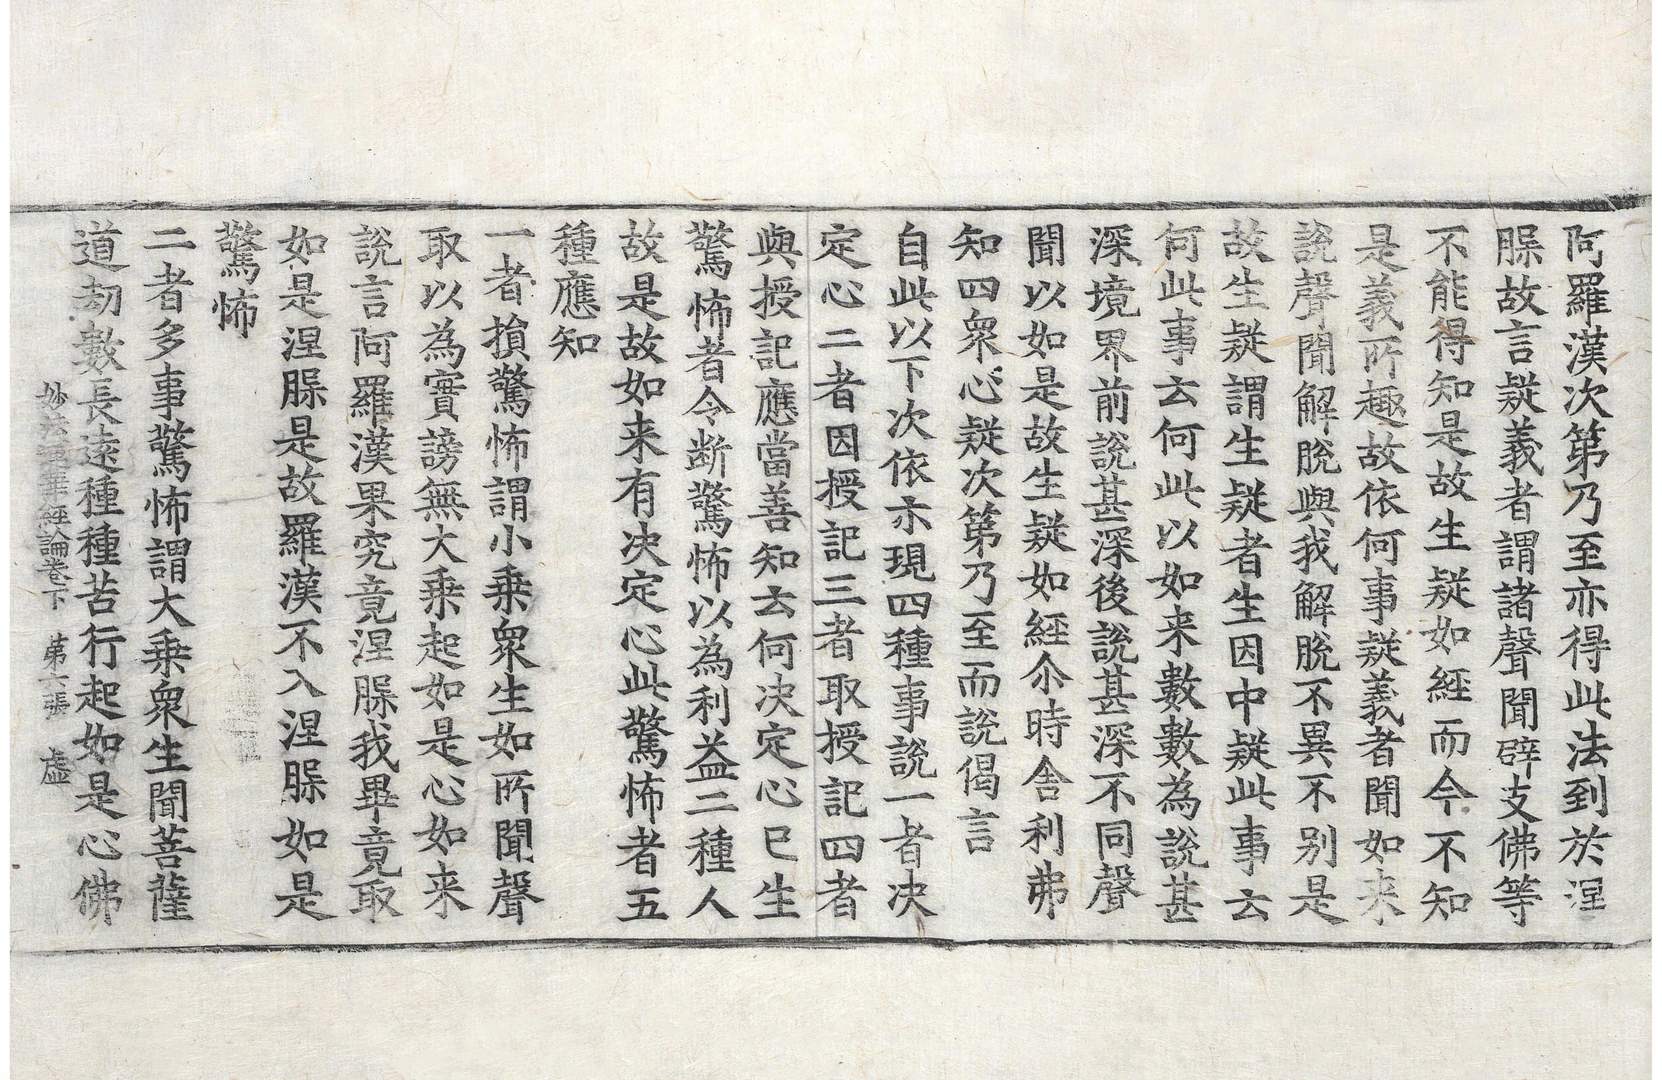 阿羅漢次第乃至亦得此法到於涅
𦠆故言疑義者謂諸聲聞辟支佛等
不能得知是故生疑如經而今不知
是義所趣故依何事疑義者聞如来
說聲聞解脫與我解脫不異不别是
故生疑謂生疑者生因中疑此事云
何此事云何此以如来數數為說甚
深境界前說甚深後說甚深不同聲
聞以如是故生疑如經尒時舍利弗
知四衆心疑次第乃至而說偈言
自此以下次依示現四種事說一者决
定心二者因授記三者取授記四者
與授記應當善知云何决定心已生
驚怖者令断驚怖以為利益二種人
故是故如来有决定心此驚怖者五
種應知
一者損驚怖謂小乗衆生如所聞聲
取以為實謗無大乗起如是心如来
說言阿羅漢果究竟涅𦠆我畢竟取
如是涅𦠆是故羅漢不入涅𦠆如是
驚怖
二者多事驚怖謂大乗衆生聞菩薩
道劫數長遠種種苦行起如是心佛
妙法蓮華經論卷下 第六張 虛